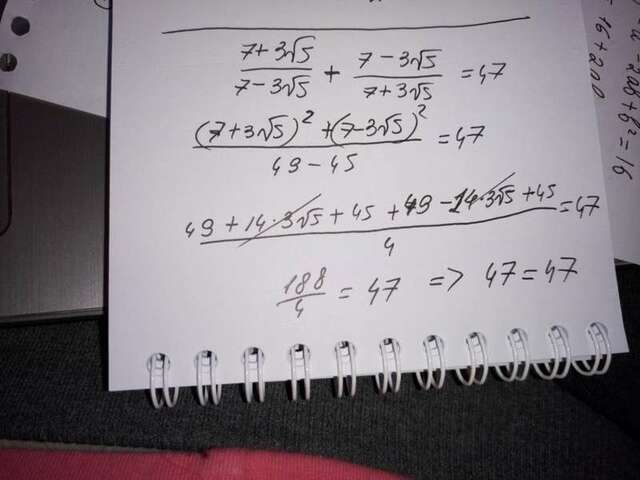 (7+3√5)/(7-3√5) + (7-3√5)/(7+3√5) = 47
((7+3√5)² + (7-3√5)²)/(49-45) = 47
(49+14·3√5+45+49-14·3√5+45)/4 = 47
188/4 = 47 => 47 = 47
-2ab+b²=16
16+2ab